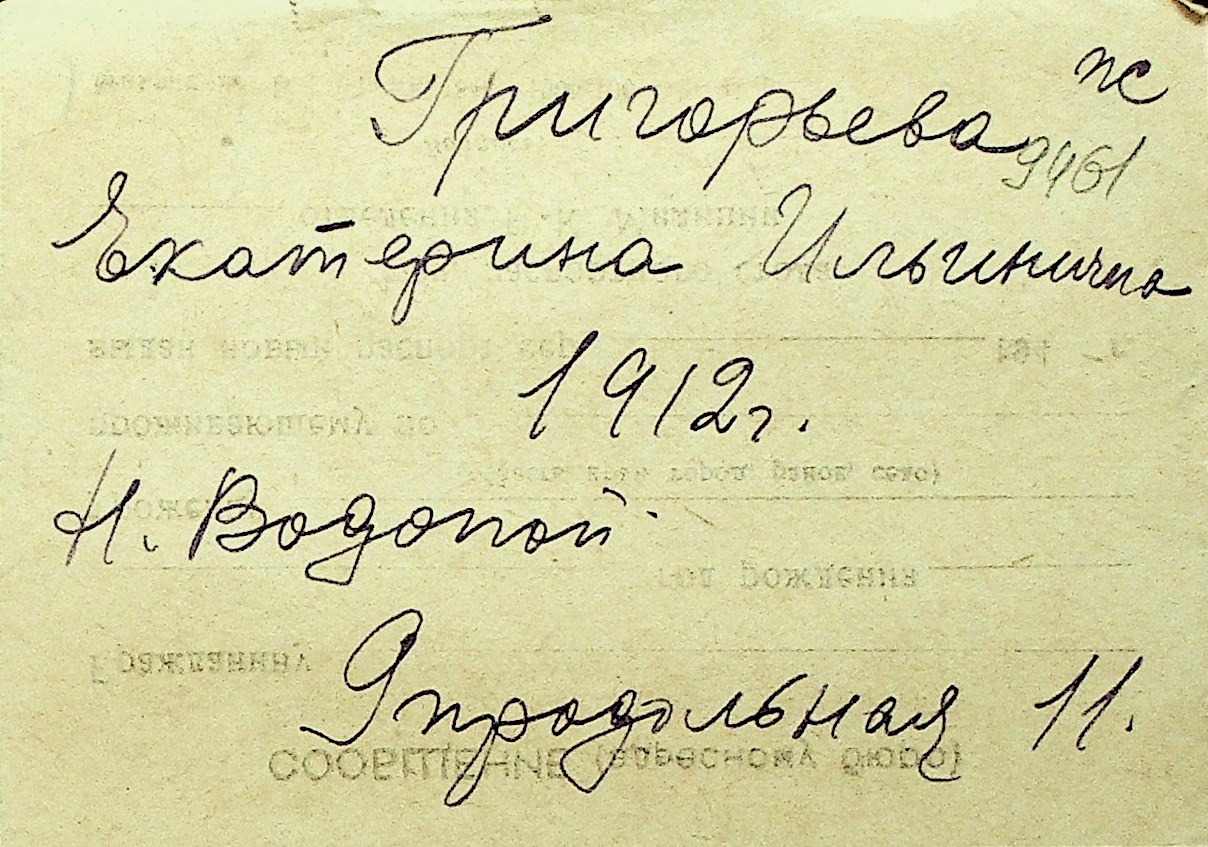 Григорьева ж
9461
Екатерина Ильинична
1912г.
Н. Водопой.
9 продольная 11.